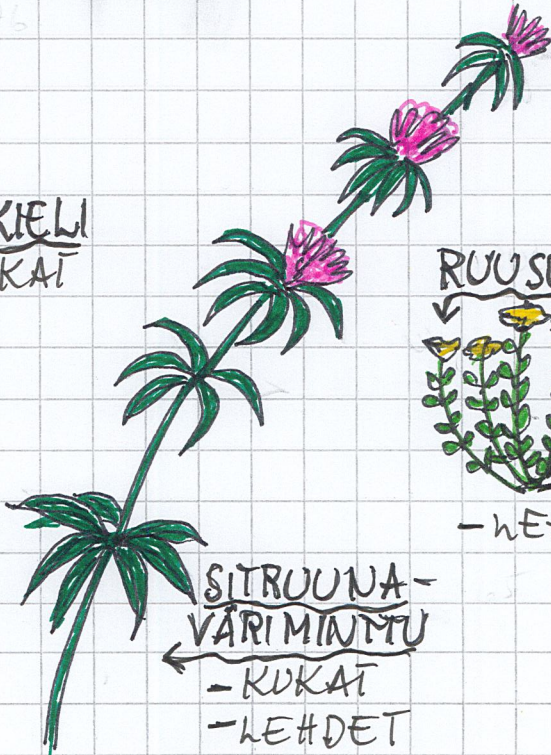 KIELI
KAT
RUUSU
SITRUUNA-
VÄRIMINTTU
- KUKAT
- LEHDET
- LE